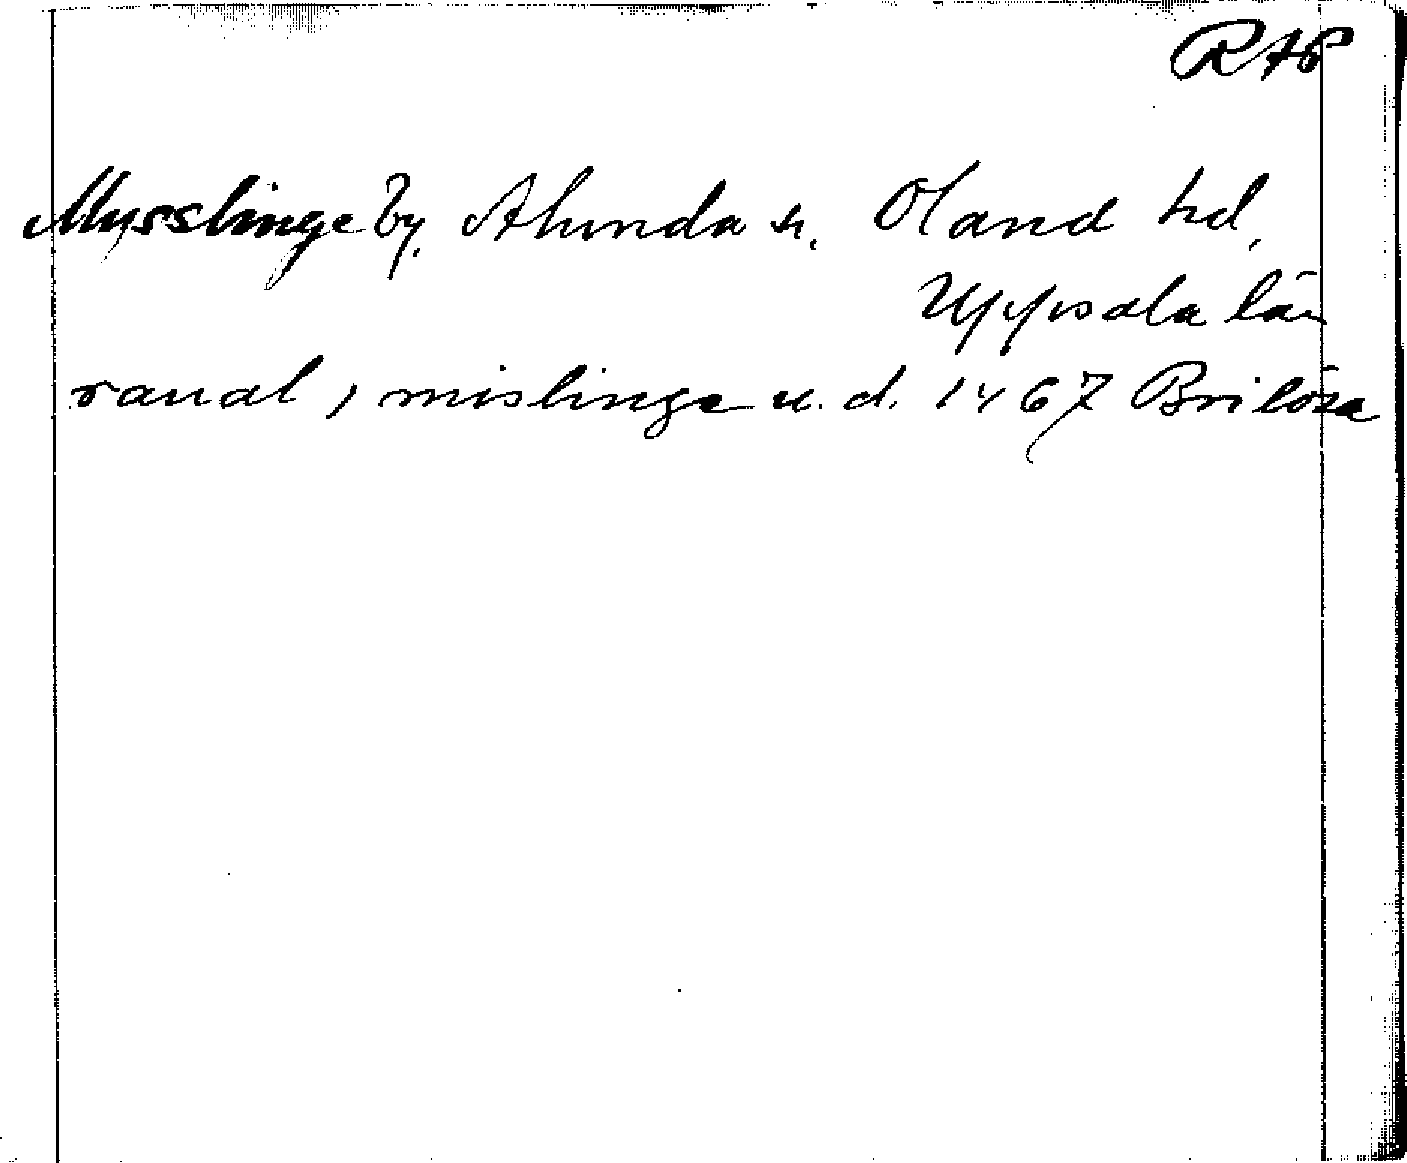 RAP
Mysslinge by, Alunda sn. Oland hd,
Uppsala län
raual, mislinge u. d. 1467 Britösa